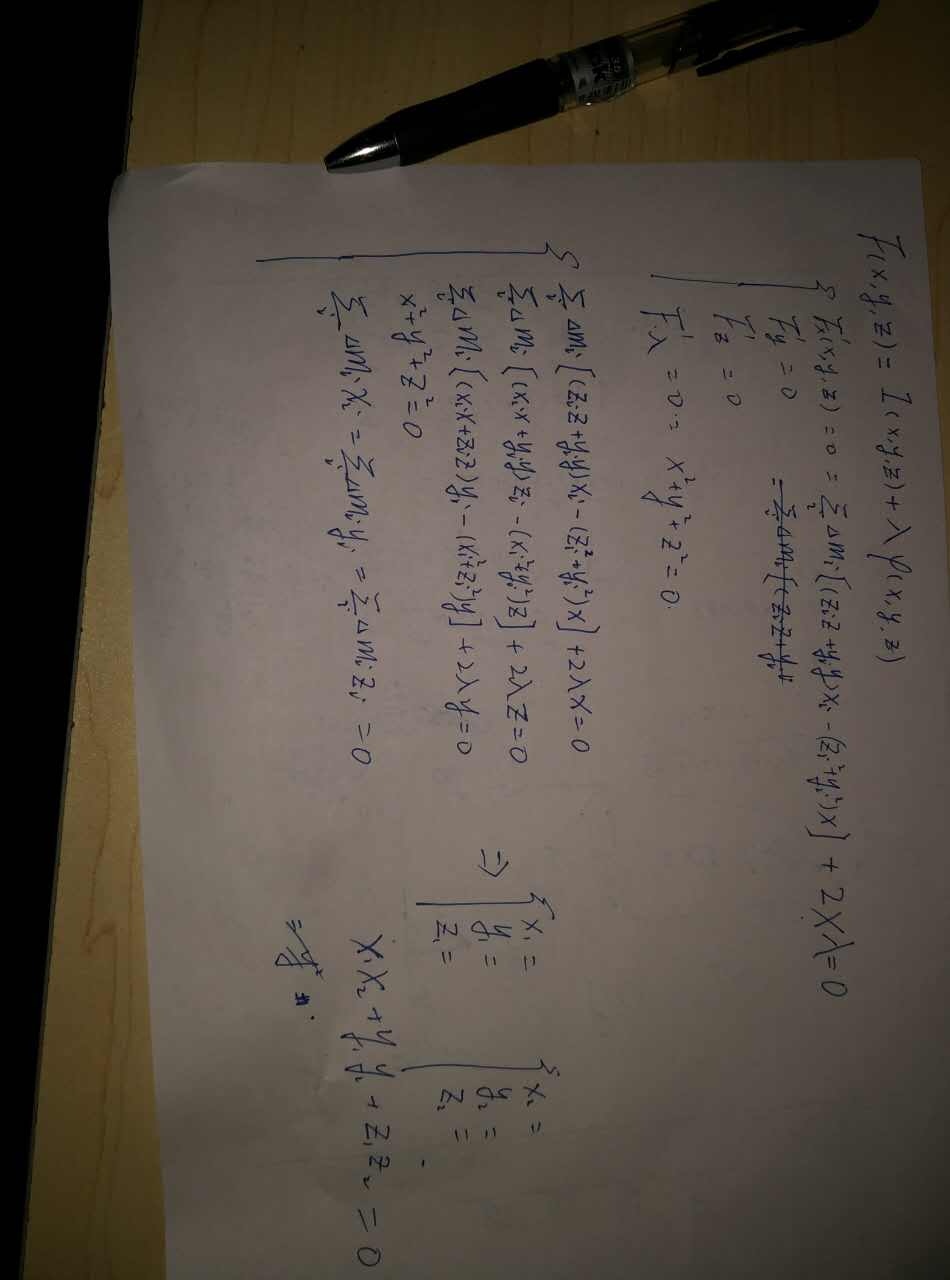 F(x,y,z) = I(x,y,z) + λ φ(x,y,z)
F'x(x,y,z) = 0 = Σi Δmi[(ziz+yiy)xi - (zi²+yi²)x] + 2xλ = 0
F'y = 0 = Σi Δmi[(ziz+yi
F'z = 0
F'λ = 0 = x²+y²+z² = 0.
Σi Δmi[(ziz+yiy)xi - (zi²+yi²)x] + 2λx = 0
Σi Δmi[(xix+yiy)zi - (xi²+yi²)z] + 2λz = 0
Σi Δmi[(xix+ziz)yi - (xi²+zi²)y] + 2λy = 0
x²+y²+z² = 0
Σi Δmixi = Σi Δmiyi = Σi Δmizi = 0
⇒
x₁ =
y₁ =
z₁ =
x₂ =
y₂ =
z₂ =
x₁x₂ + y₁y₂ + z₁z₂ = 0
3.0